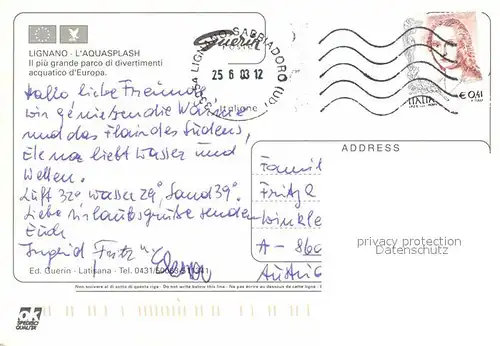 LIGNANO - L'AQUASPLASH
Il più grande parco di divertimenti
acquatico d'Europa.
Guerin
LIGNANO SABBIADORO (UD)
25 6 03 12
Italiane
ITALIA
€ 0,41
Hallo liebe Freunde
wir genießen die Wärme
und das Flair des Südens,
Elena liebt Wasser und
Wellen.
Luft 32° Wasser 29°, Sand 39°.
Liebe Urlaubsgrüße senden
Euch
Ingrid Fritz
ADDRESS
Famil
Fritz
Winkle
A - 860
Austri
privacy protection
Datenschutz
Ed. Guerin - Latisana - Tel. 0431/
Non scrivere al di sotto di questa riga - Do not write below this line - Ne pas écrire au dessous de cette ligne
ok
SPEDIBO
QUALSER